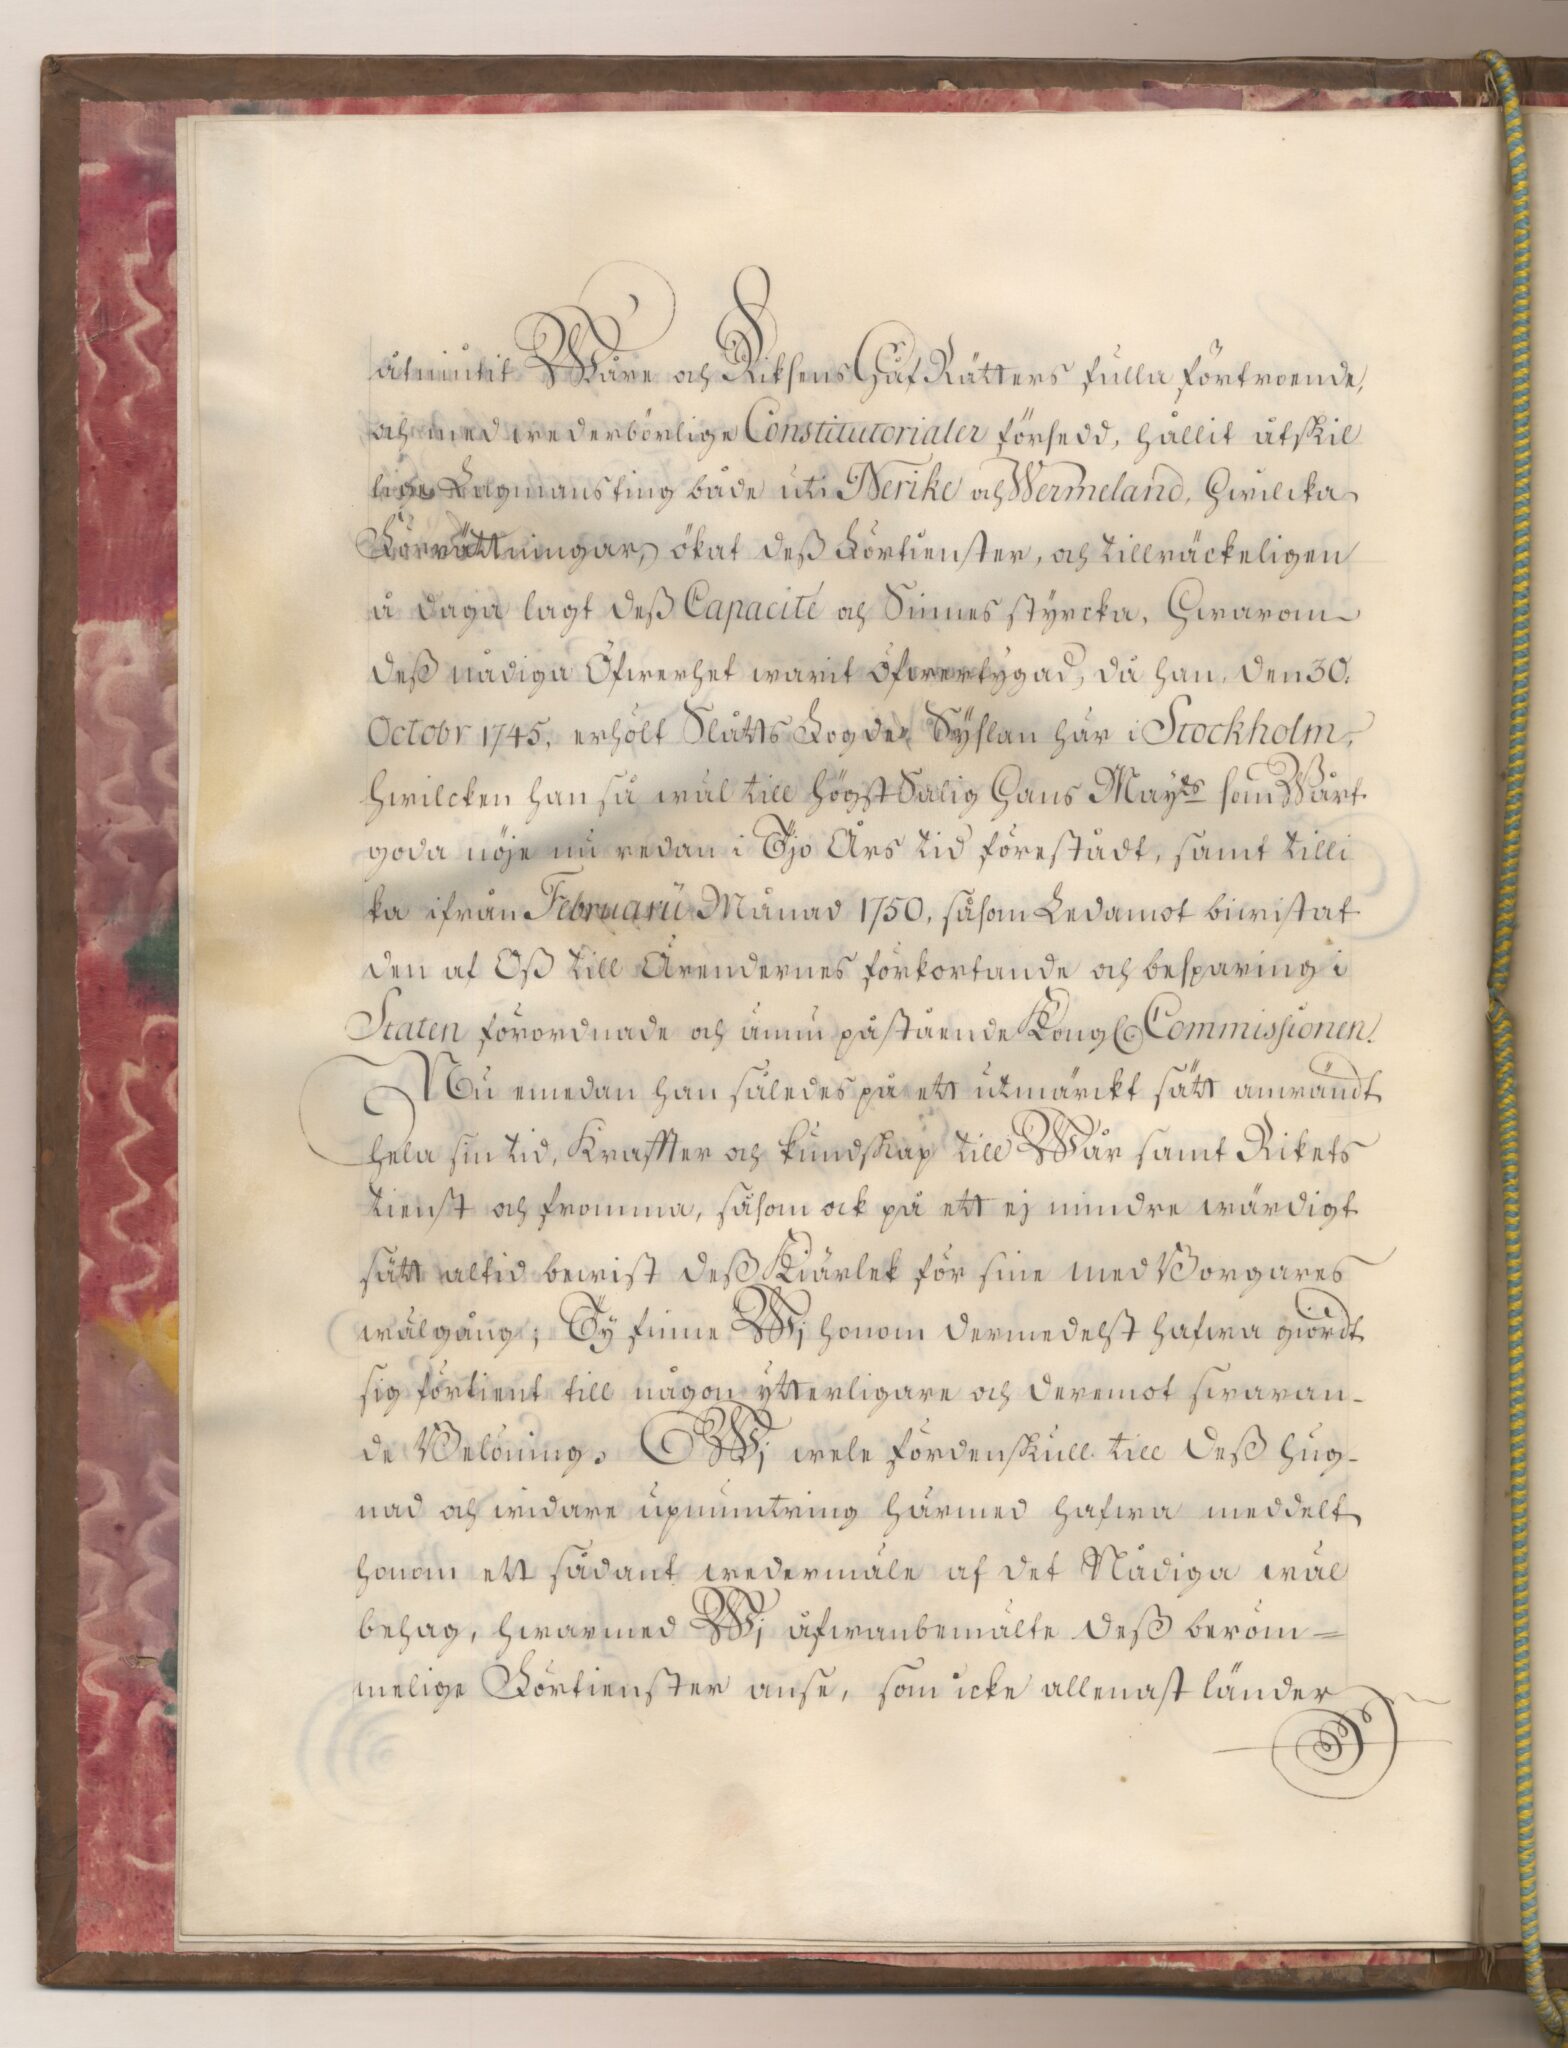 åtniutit Wåre och Riksens Håf Rätters fulla förtroende,
och med wederbörlige Constitutorialer försedd, hållit åtskil
lige Lagmansting både uti Nerike och Wermeland, Hwilcka
Förrättningar, ökat deß Förtienster, och tillräckeligen
å daga lagt deß Capacité och Sinnes styrcka, Hwarom
deß nådiga Öfwerhet warit öfwertygad, då han, den 30.
Octobr 1745, erhölt Slåtts Fogde Sysslan här i Stockholm,
hwilcken han så wäl till högst Salig Hans Mayts som Wårt
goda nöje nu redan i Tjo Års tid förestådt, samt tilli
ka ifrån Februarii Månad 1750, såsom Ledamot biwistat
den af Oß till Ärendernes förkortande och besparing i
Staten förordnade och ännu påstående Kongl. Commissionen.
Nu emedan han således på ett utmärckt sätt anwändt
hela sin tid, Kraffter och kundskap till Wår samt Rikets
tienst och fromma, såsom ock på ett ej mindre wärdigt
sätt altid bewist deß Kiärlek för sine med Borgares
wälgång; Ty finne Wj honom dermedelst hafwa giördt
sig förtient till någon ytterligare och deremot swaran-
de Belöning. Wj wele fördenskull till deß hug-
nad och widare upmuntring härmed hafwa meddelt
honom ett sådant wedermäle af det Nådiga wäl
behag, hwarmed Wj åfwanbemälte deß beröm=
melige Förtienster anse, som icke allenast länder